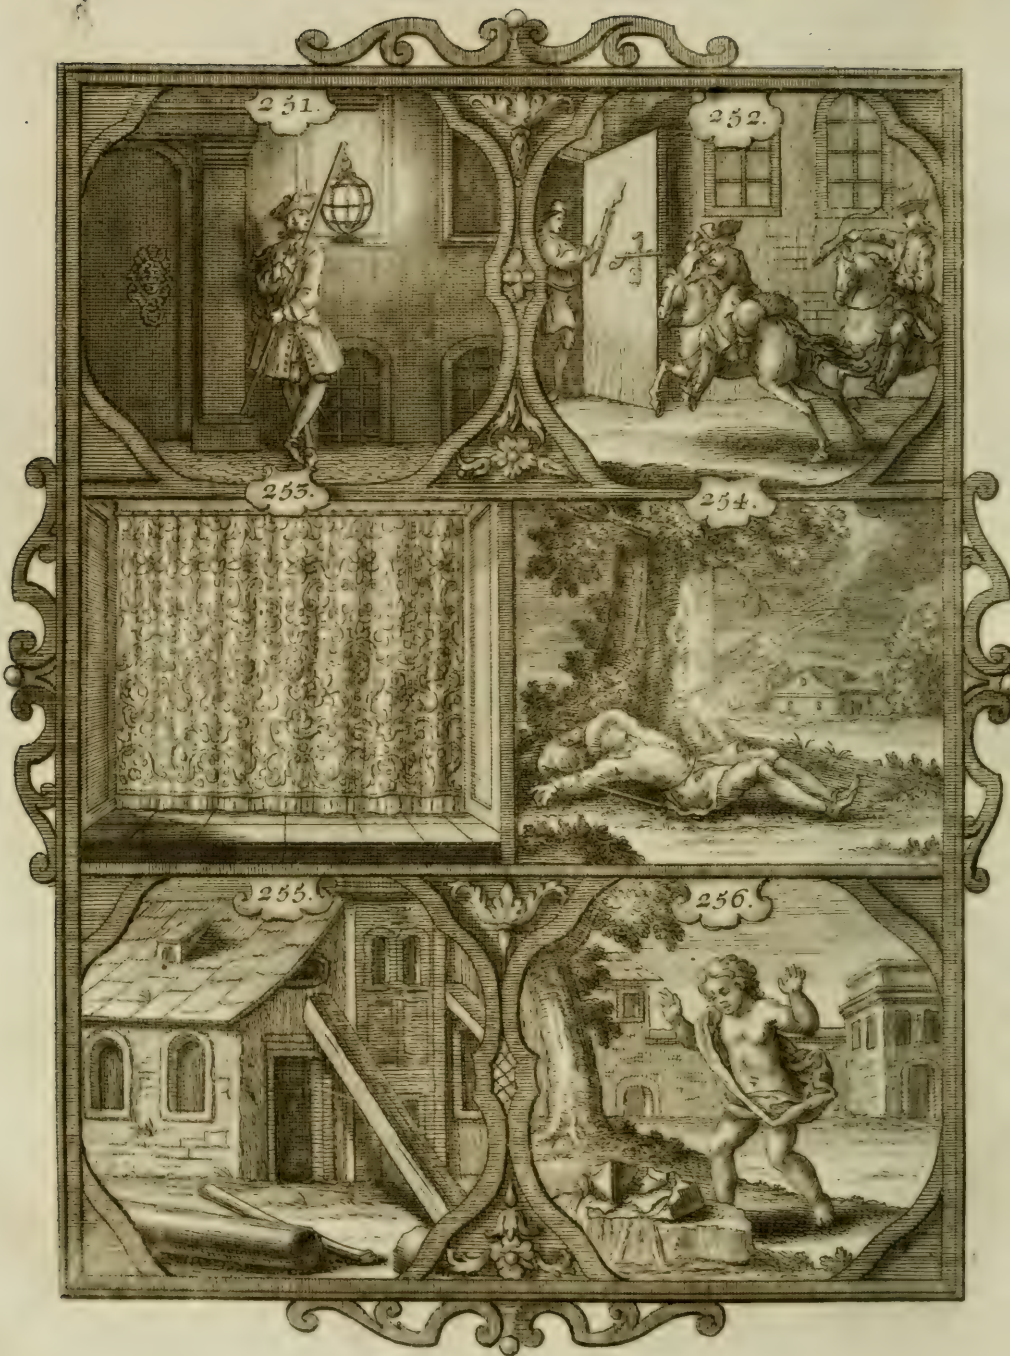 251.
252.
253.
254.
255.
256.